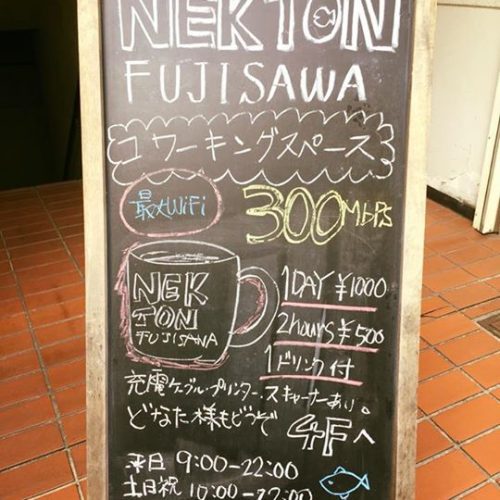 NEKTON
FUJISAWA
コワーキングスペース
最大WiFi 300Mbps
NEK
TON
FUJISAWA
1DAY ¥1000
2hours ¥500
1ドリンク付
充電ケーブル・プリンター・スキャナーあり。
どなた様もどうぞ 4Fへ
平日 9:00-22:00
土日祝 10:00-22:00